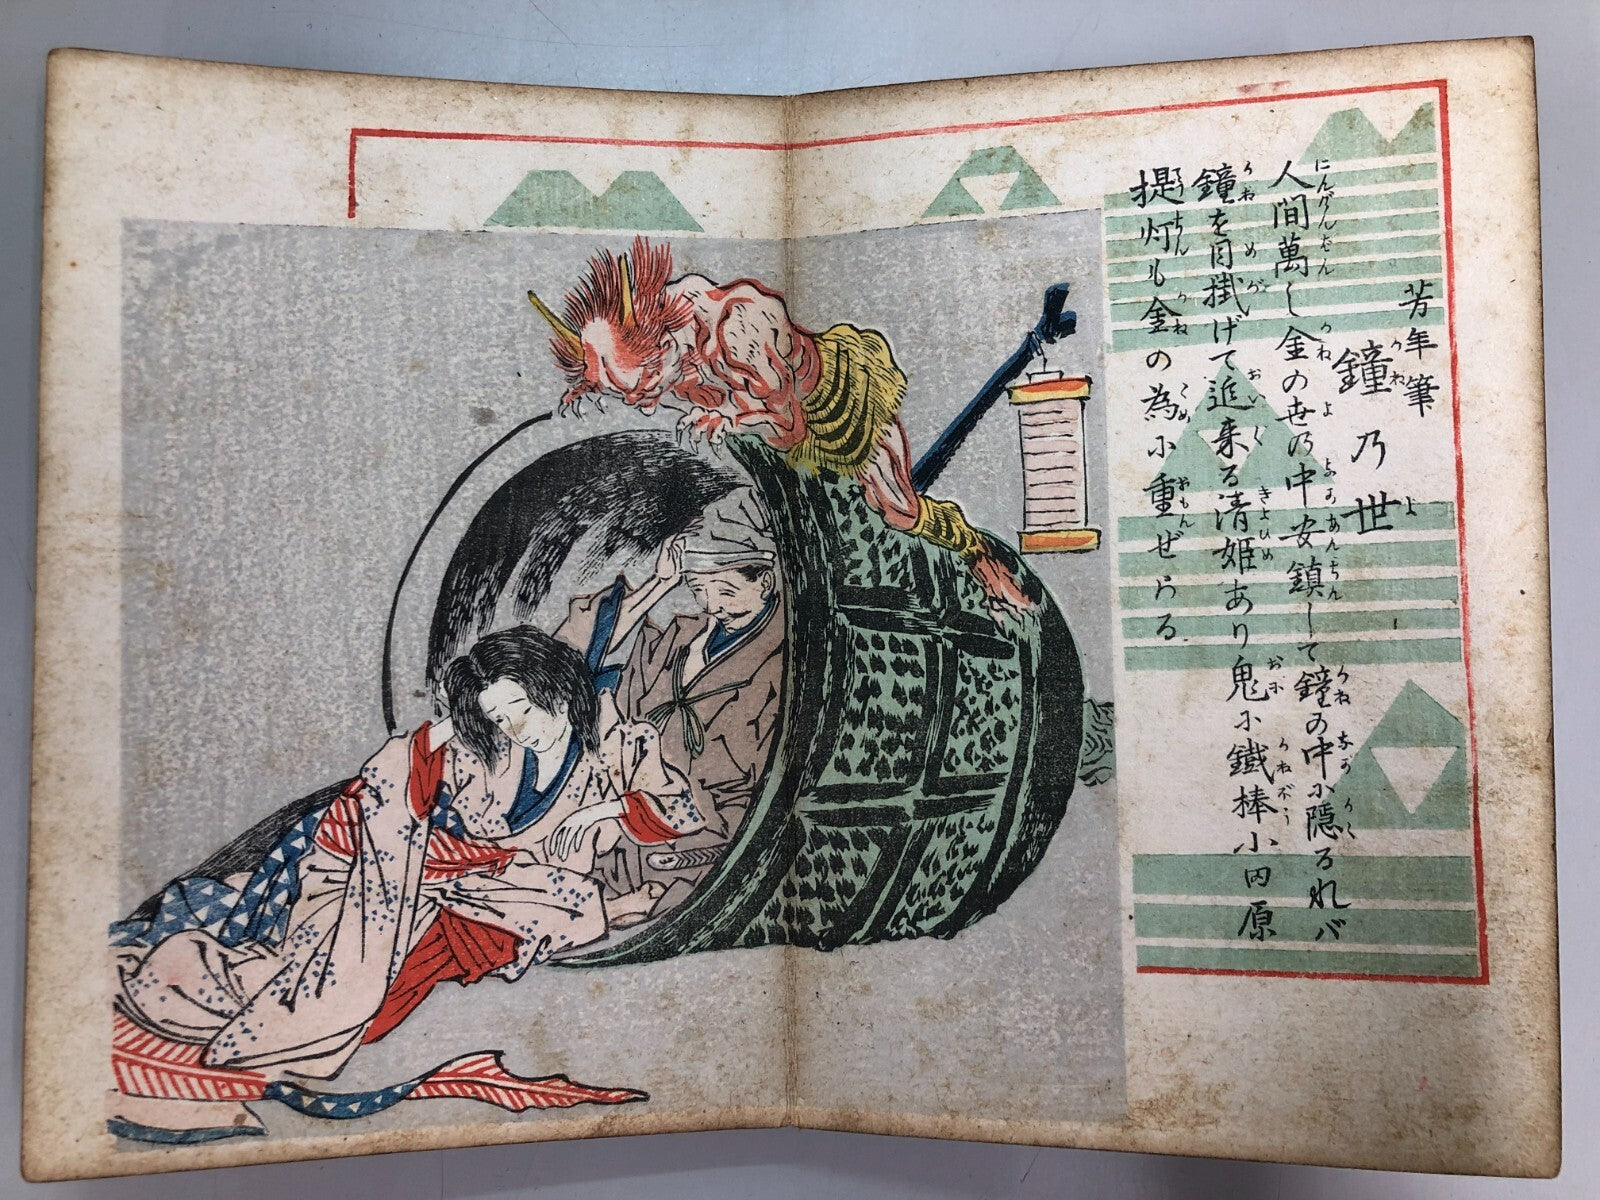 芳年筆
鐘乃世
人間萬し金の世乃中安鎮して鐘の中小隠るれバ
鐘を目掛げて追来る清姫あり鬼小鐵棒小田原
提灯も金の為小重ぜらる